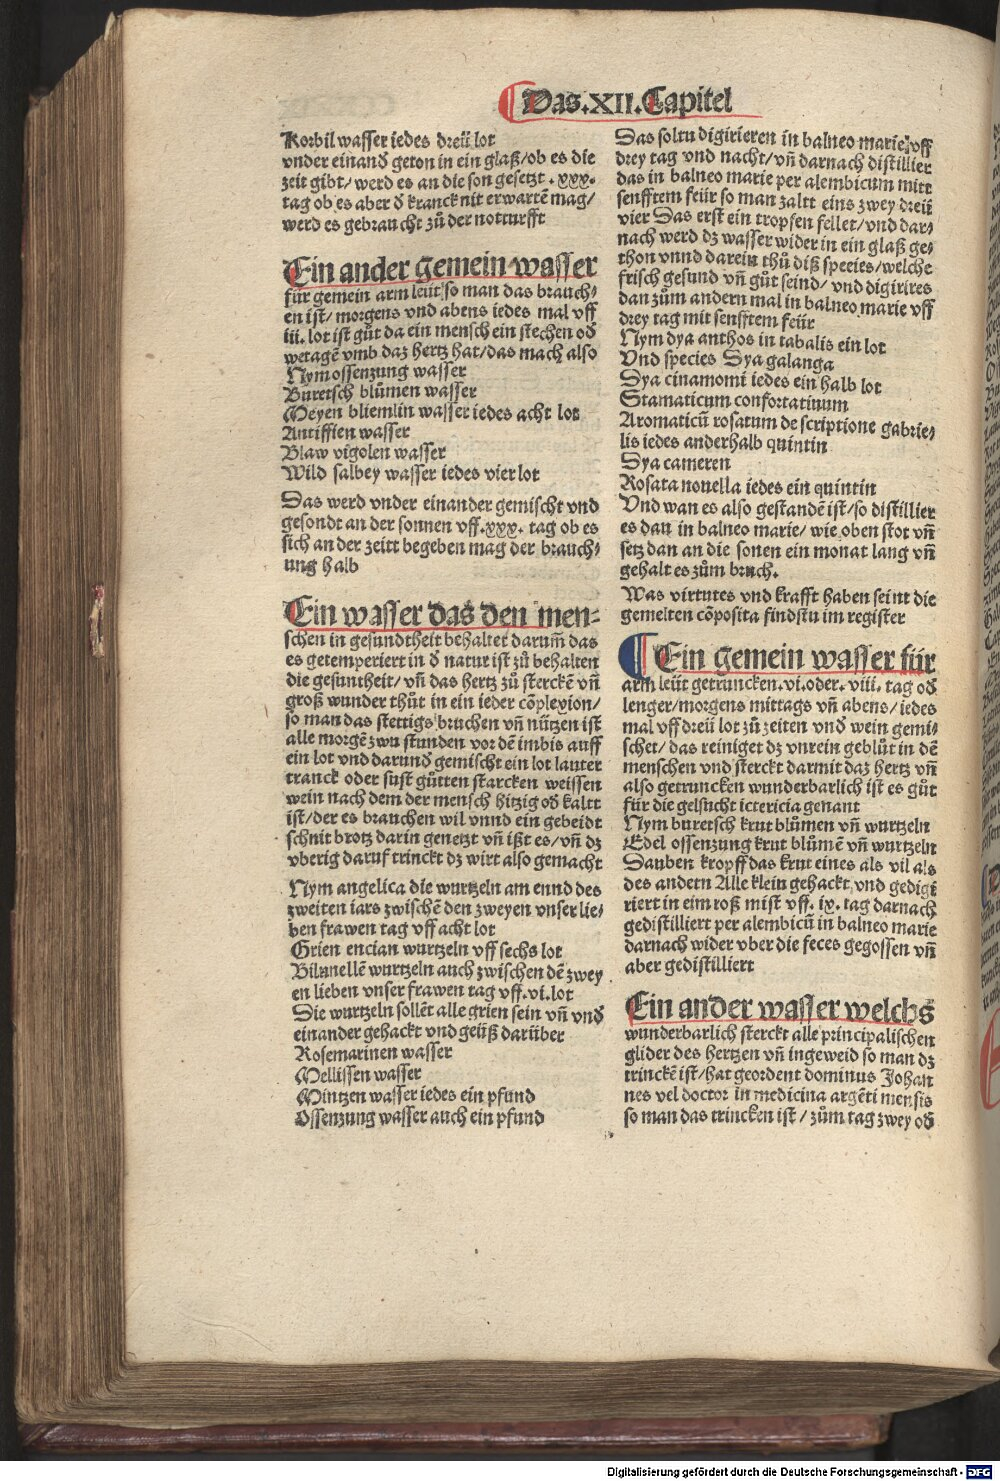 Das.XII.Capitel
Korbil wasser iedes dreü lot
vnder einand̄ geton in ein glaß/ob es die
zeit gibt/ werd es an die son gesetzt .xxx.
tag ob es aber d̄ kranck nit erwartē mag/
werd es gebraucht zů der notturfft
Ein ander gemein wasser
für gemein arm leüt so man das brauch⸗
en ist/ morgens vnd abens iedes mal vff
iii. lot ist gůt da ein mensch ein stechen od̄
wetagē vmb daz hertz hat/das mach also
Nym ossenzung wasser
Buretsch blůmen wasser
Meyen bliemlin wasser iedes acht lot
Antiffien wasser
Blaw vigolen wasser
Wild salbey wasser iedes vier lot
Das werd vnder einander gemischt vnd
gesondt an der sonnen vff.xxx. tag ob es
sich an der zeitt begeben mag der brauch⸗
ung halb
Ein wasser das den men⸗
schen in gesundtheit behaltet darum̄ das
es getemperiert in d̄ natur ist zů behalten
die gesuntheit/ vn̄ das hertz zů sterckē vn̄
groß wunder thůt in ein ieder cōplexion/
so man das stettigs bruchen vn̄ nützen ist
alle morgē zwu stunden vor dē imbis auff
ein lot vnd darund̄ gemischt ein lot lauter
tranck oder sust gůtten starcken weissen
wein nach dem der mensch hitzig od̄ kaltt
ist/der es brauchen wil vnnd ein gebeidt
schnit brotz darin genetzt vn̄ ißt es/vn̄ dz
vberig daruf trinckt dz wirt also gemacht
Nym angelica die wurtzeln am ennd des
zweiten iars zwischē den zweyen vnser lie⸗
ben frawen tag vff acht lot
Grien encian wurtzeln vff sechs lot
Bibnellē wurtzeln auch zwischen dē zwey
en lieben vnser frawen tag vff.vi.lot
Die wurtzeln sollēt alle grien sein vn̄ vnd̄
einander gehackt vnd geüß darüber
Rosemarinen wasser
Mellissen wasser
Mintzen wasser iedes ein pfund
Ossenzung wasser auch ein pfund
Das soltu digirieren in balneo marie vff
drey tag vnd nacht/vn̄ darnach distillier
das in balneo marie per alembicum mitt
senfftem feür so man zaltt eins zwey dreü
vier Das erst ein tropfen fellet/vnd dar⸗
nach werd dz wasser wider in ein glaß ge⸗
thon vnnd darein thů diß species/welche
frisch gesund vn̄ gůt seind/ vnd digirires
dan zům andern mal in balneo marie vff
drey tag mit senfftem feür
Nym dya anthos in tabalis ein lot
Vnd species Dya galanga
Dya cinamomi iedes ein halb lot
Stamaticum confortatiuum
Aromaticū rosatum descriptione gabrie⸗
lis iedes anderhalb quintin
Dya cameren
Rosata nouella iedes ein quintin
Vnd wan es also gestandē ist/so distillier
es dan in balneo marie/ wie oben stot vn̄
setz dan an die sonen ein monat lang vn̄
gehalt es zům bruch.
Was virtutes vnd krafft haben seint die
gemelten cōposita findstu im register
Ein gemein wasser für
arm leüt getruncken.vi.oder. viii. tag od̄
lenger/morgens mittags vn̄ abens/ iedes
mal vff dreü lot zů zeiten vnd wein gemi⸗
schet/ das reiniget dz vnrein geblůt in dē
menschen vnd sterckt darmit daz hertz vn̄
also getruncken wunderbarlich ist es gůt
für die gelsucht ictericia genant
Nym buretsch krut blůmen vn̄ wurtzeln
Edel ossenzung krut blůmē vn̄ wurtzeln
Dauben kropff das krut eines als vil als
des andern Alle klein gehackt vnd gedigi
riert in eim roß mist vff. ix. tag darnach
gedistilliert per alembicū in balneo marie
darnach wider vber die feces gegossen vn̄
aber gedistilliert
Ein ander wasser welchs
wunderbarlich sterckt alle principalischen
glider des hertzen vn̄ ingeweid so man dz
trinckē ist/hat geordent dominus Johan
nes vel doctor in medicina argēti mensis
so man das trincken ist / zům tag zwey od̄
Digitalisierung gefördert durch die Deutsche Forschungsgemeinschaft - DFG